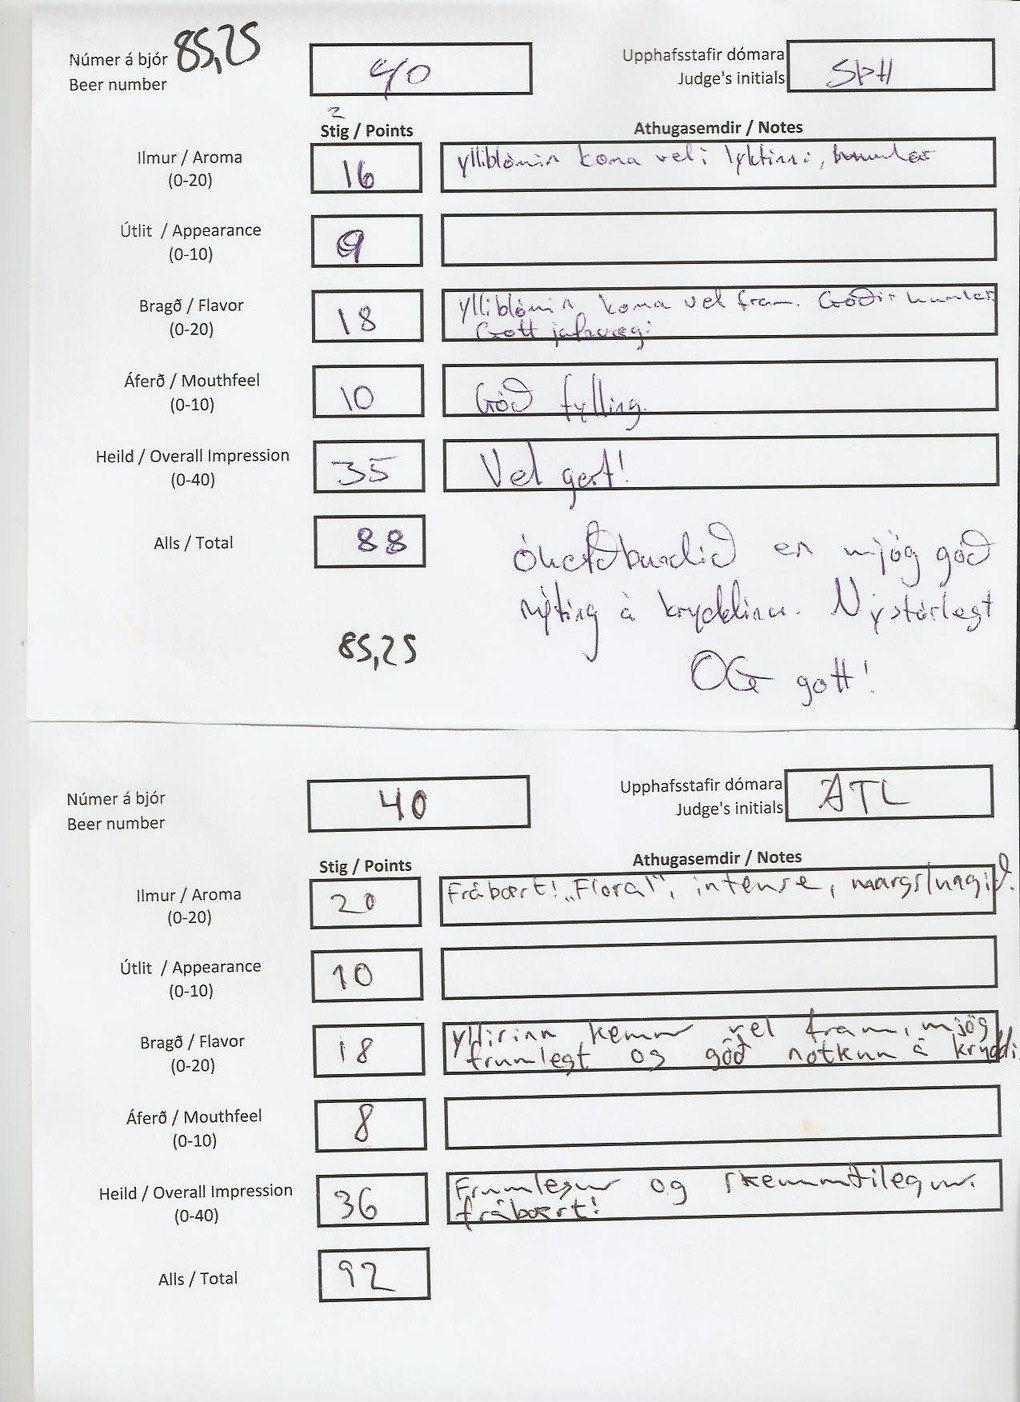 Númer á bjór 85,25
Beer number
40
Upphafsstafir dómara
Judge's initials
SÞH
2
Stig / Points
Athugasemdir / Notes
Ilmur / Aroma
(0-20)
16
ylliblómin koma vel í lyktinni, humlar
Útlit / Appearance
(0-10)
9
Bragð / Flavor
(0-20)
18
Ylliblómin koma vel fram. Góðir humlar.
Gott jafnvægi
Áferð / Mouthfeel
(0-10)
10
Góð fylling.
Heild / Overall Impression
(0-40)
35
Vel gert!
Alls / Total
88
Óhefðbundið en mjög góð
nýting á kryddinu. Nýstárlegt
OG gott!
85,25
Númer á bjór
Beer number
40
Upphafsstafir dómara
Judge's initials
ATL
Stig / Points
Athugasemdir / Notes
Ilmur / Aroma
(0-20)
20
Frábært! „Floral", intense, margslungið.
Útlit / Appearance
(0-10)
10
Bragð / Flavor
(0-20)
18
Yllirinn kemur vel fram, mjög
frumlegt og góð notkun á kryddi.
Áferð / Mouthfeel
(0-10)
8
Heild / Overall Impression
(0-40)
36
Frumlegur og skemmtilegur.
frábært!
Alls / Total
92